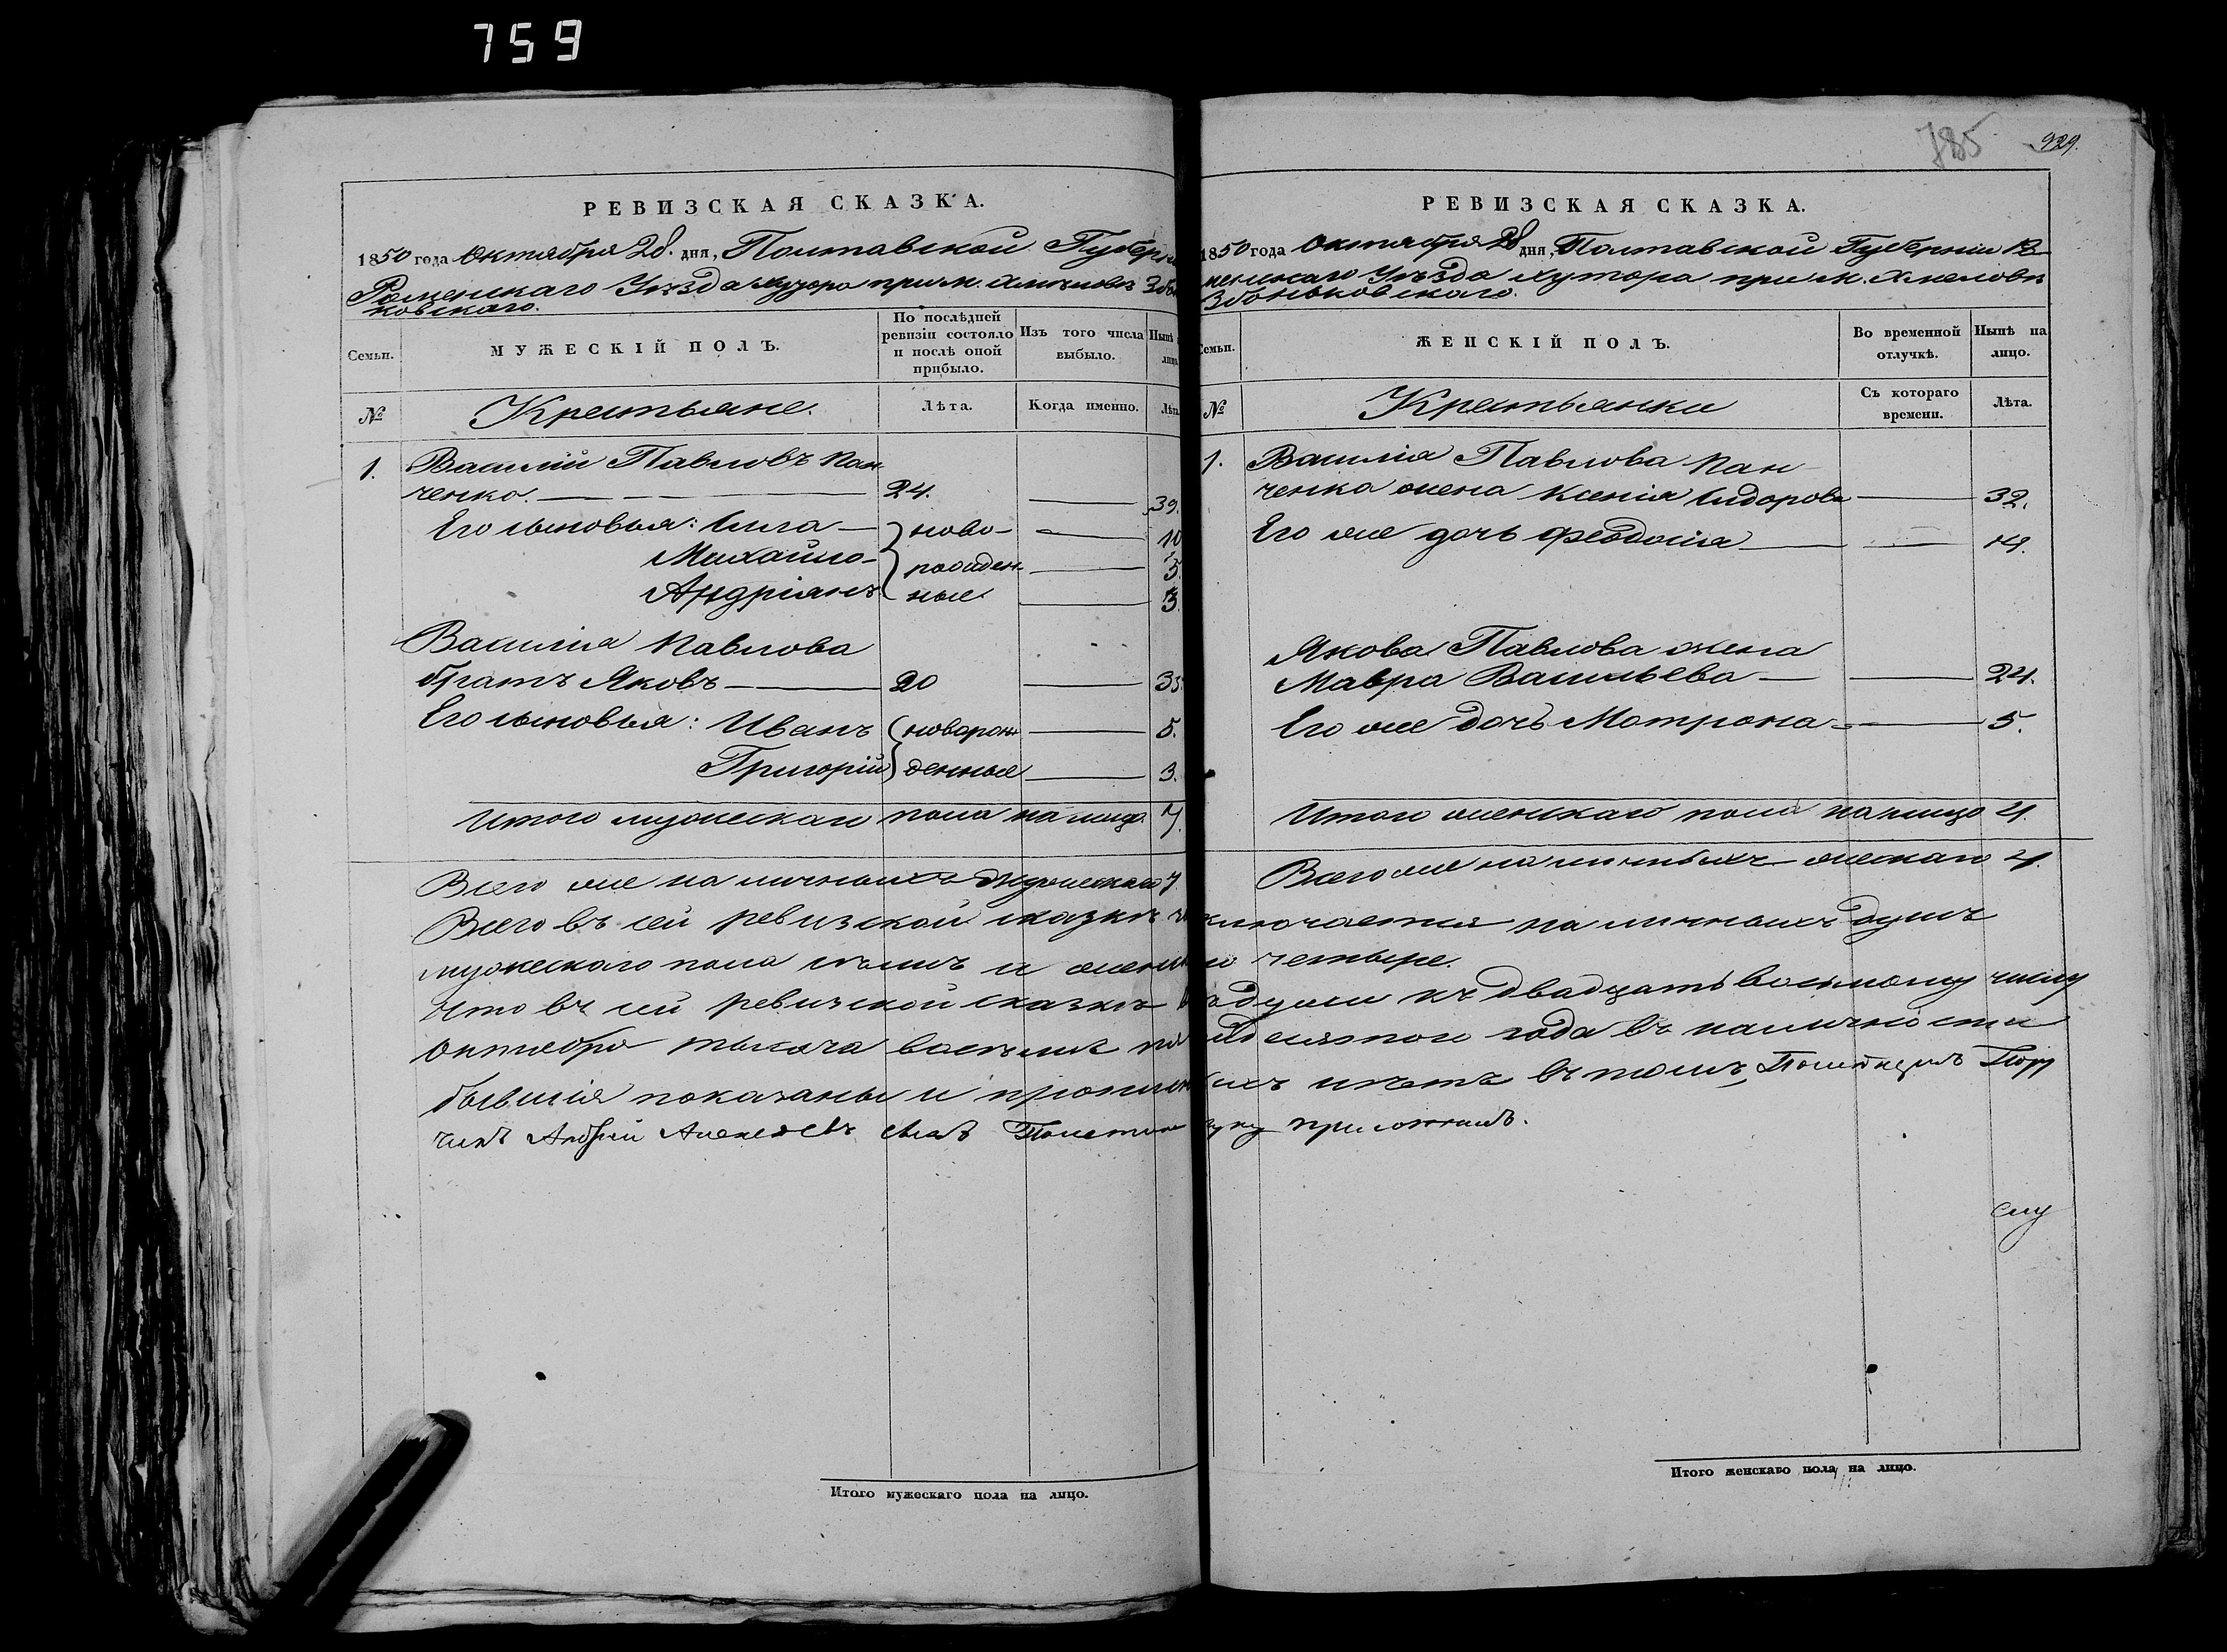 759
РЕВИЗСКАЯ СКАЗКА.
1850 года Октября 28. дня, Полтавской Губерн
Роменскаго Уѣзда хутора при м. Хмѣловѣ Збонь
ковскаго.
Семьи.
МУЖЕСКІЙ ПОЛЪ.
По послѣдней ревизіи состояло и послѣ оной прибыло.
Изъ того числа выбыло.
Нынѣ
лицо
№
Крестьяне.
Лѣта.
Когда именно.
Лѣта
1. Василій Павловъ Пан
ченко. 24. 39.
Его сыновья: Сила ново- 10
Михайло рожден 5.
Андріянъ ные 3.
Василія Павлова
братъ Яковъ 20 35
Его сыновья: Иванъ новорож 5.
Григорій денные 3.
Итого мужескаго пола на лицо. 7.
Всего же на личныхъ Мужескаго 7.
785
929.
РЕВИЗСКАЯ СКАЗКА.
1850 года Октября 28 дня, Полтавской Губерніи Ро
менскаго Уѣзда хутора при м. Хмеловѣ
Збоньковскаго.
Семьи.
ЖЕНСКІЙ ПОЛЪ.
Во временной отлучкѣ.
Нынѣ на лицо.
№
Крестьянки
Съ котораго времени.
Лѣта.
1. Василія Павлова Пан
ченка жена Ксенія Сидорова 32.
Его же дочь Феодосія 14.
Якова Павлова жена
Мавра Васильева 24.
Его же дочь Мотрона 5.
Итого женскаго пола на лицо 4.
Всего же на личныхъ женскаго 4.
Всего въ сей ревизской сказкѣ заключается на личныхъ душъ
мужескаго пола семь и женскаго четыре.
Что въ сей ревизской сказкѣ всѣ души къ двадцать восьмому числу
Октября тысяча восемьсотъ пятьдесятого года въ наличности
бывшія показаны и прописныхъ нѣтъ въ томъ, Помѣщикъ Пору
чикъ Андрей Алексеевъ сынъ руку приложилъ.
Итого мужескаго пола на лицо.
Итого женскаго пола на лицо.